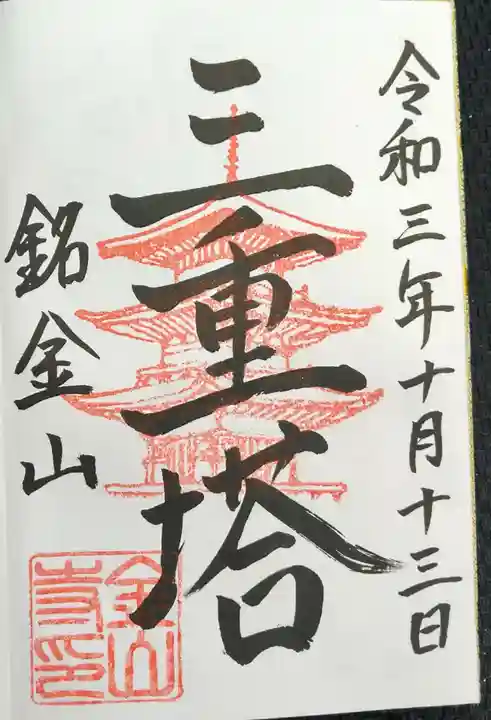 令和三年十月十三日
三重塔
銘金山
金山
寺印